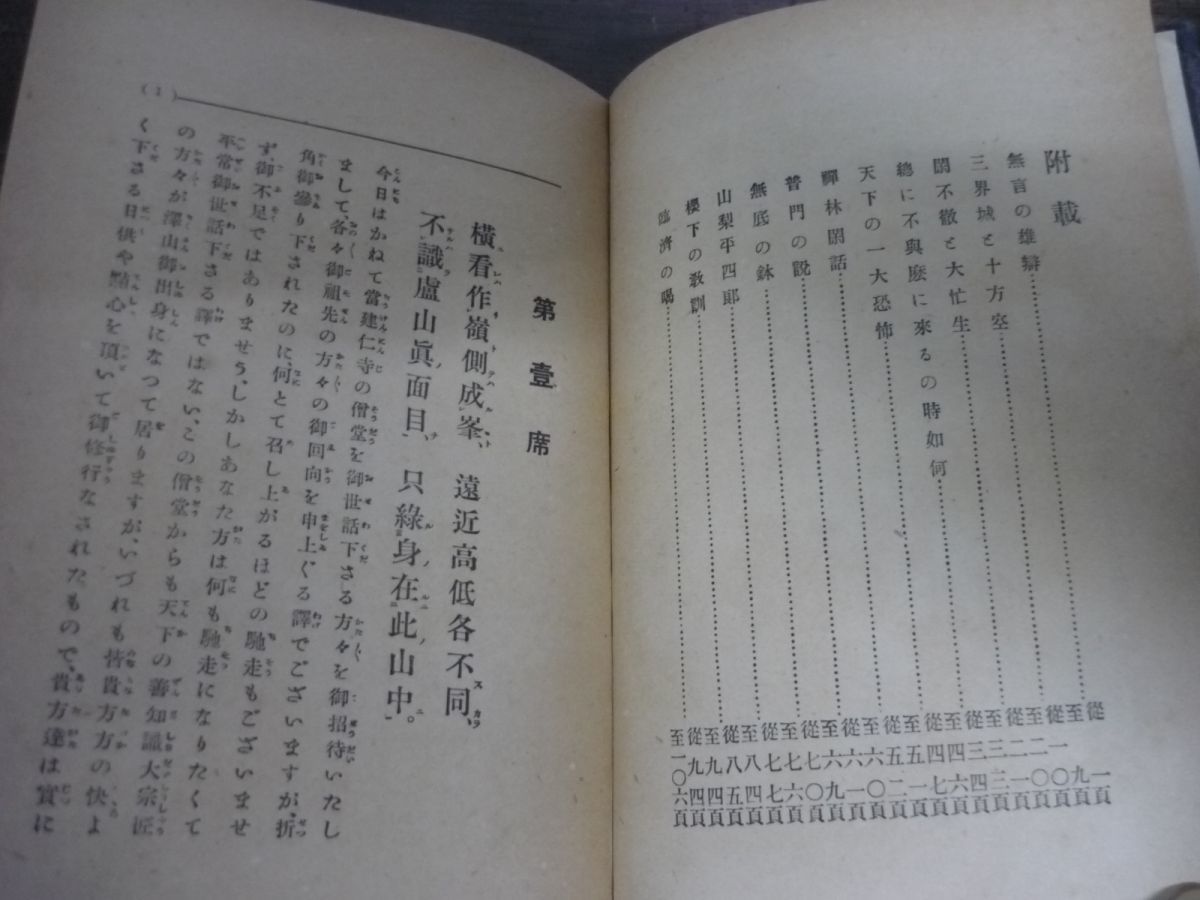 附載
無言の雄辯……從一頁 至九頁
三界城と十方空……從一〇頁 至二〇頁
閑不徹と大忙生……從二一頁 至三三頁
總に不與麽に來るの時如何……從三四頁 至四六頁
天下の一大恐怖……從四七頁 至五一頁
禪林閑話……從五二頁 至六〇頁
普門の説……從六一頁 至六九頁
無底の鉢……從七〇頁 至七六頁
山梨平四郎……從七七頁 至八四頁
櫻下の敎訓……從八五頁 至九四頁
臨濟の喝……從九四頁 至一〇六頁
(1)
第壹席
橫看作嶺側成峯、遠近高低各不同、
不識盧山眞面目、只緣身在此山中。
今日はかねて當建仁寺の僧堂を御世話下さる方々を御招待いたし
まして、各々御祖先の方々の御回向を申上ぐる譯でございますが、折
角御參り下されたのに、何とて召し上がるほどの馳走もございませ
ず、御不足ではありませう、しかしあなた方は何も馳走になりたくて
平常御世話下さる譯ではない、この僧堂からも天下の善知識大宗匠
の方々が澤山御出身になつて居りますが、いづれも皆貴方方の快よ
く下さる日供や點心を頂いて御修行なされたもので、貴方達は實に